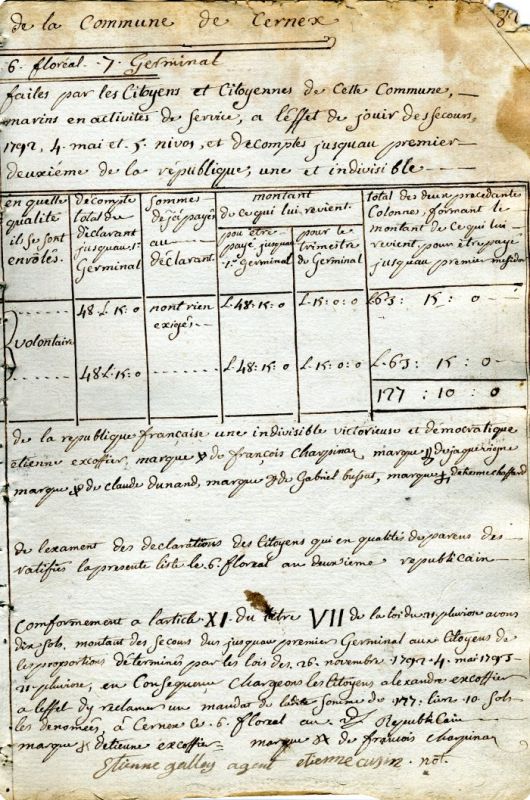 de la Commune de Cernex
6. floréal. 7. Germinal
faites par les Citoyens et Citoyennes de Cette Commune,
marins en activités de Service, a l'effet de jouir des secours,
1792, 4. mai et 5. nivos, et decomptes jusquau premier
deuxième de la république, une et indivisible
en quelle qualité ils se sont enrôlés.
decompte total du déclarant jusquau 1er Germinal
sommes déjà payés au déclarant.
montant de ce qui lui revient.
pou être payé jusquau 1er germinal
pour le trimestre de Germinal
total des deux precedentes Colonnes, formant le montant de ce qui lui revient, pour être payé jusquau premier messidor
48 L. 15. 0 nont rien exigés L. 48. 15. 0 L. 15. 0. 0 L. 63: 15: 0
volontaire
48 L. 15. 0 L. 48: 15. 0 L. 15. 0. 0 L. 63: 15: 0
127 : 10 : 0
de la republique française une indivisible victorieuse et democratique
etienne excoffier, marque de françois Charpinaz, marque de
marque de claude dunand, marque de Gabriel bussat, marque detienne chaffard
de lexament des declarations des Citoyens qui en qualités de parens des
ratifiés la presente liste le 6. floreal an deuxieme republicain
Comformement a larticle XI. du titre VII de la loi du 21 pluviose avons
dix sols, montant des Secours dus jusquau premier Germinal aux Citoyens de
les proportions déterminés par les lois des 26. novembre 1792. 4. mai 1793
21 pluviose, en Consequence Chargeons les Citoyens alexandre excoffier
a leffet dy reclamer un mandat de ladite somme de 127. livre 10. Sols
les denomés, a Cernex ce 6. floreal an 2e Republicain
marque detienne excoffier marque de françois charpinaz
Etienne gallay agent etienne not.